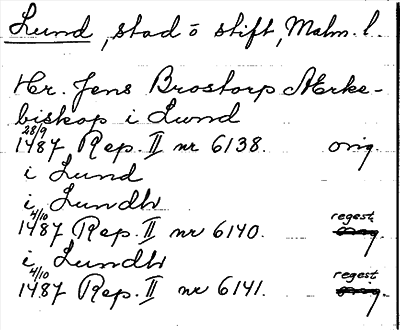 Lund, stad o stift, Malm. l.
Hr. Jens Brostorp Ærke-
biskop i Lund
28/9
1487 Rep. II nr 6138. orig.
i Lund
i Lundh
4/10 regest
1487 Rep. II nr 6140. orig.
i Lundh
4/10 regest
1487 Rep. II nr 6141. orig.